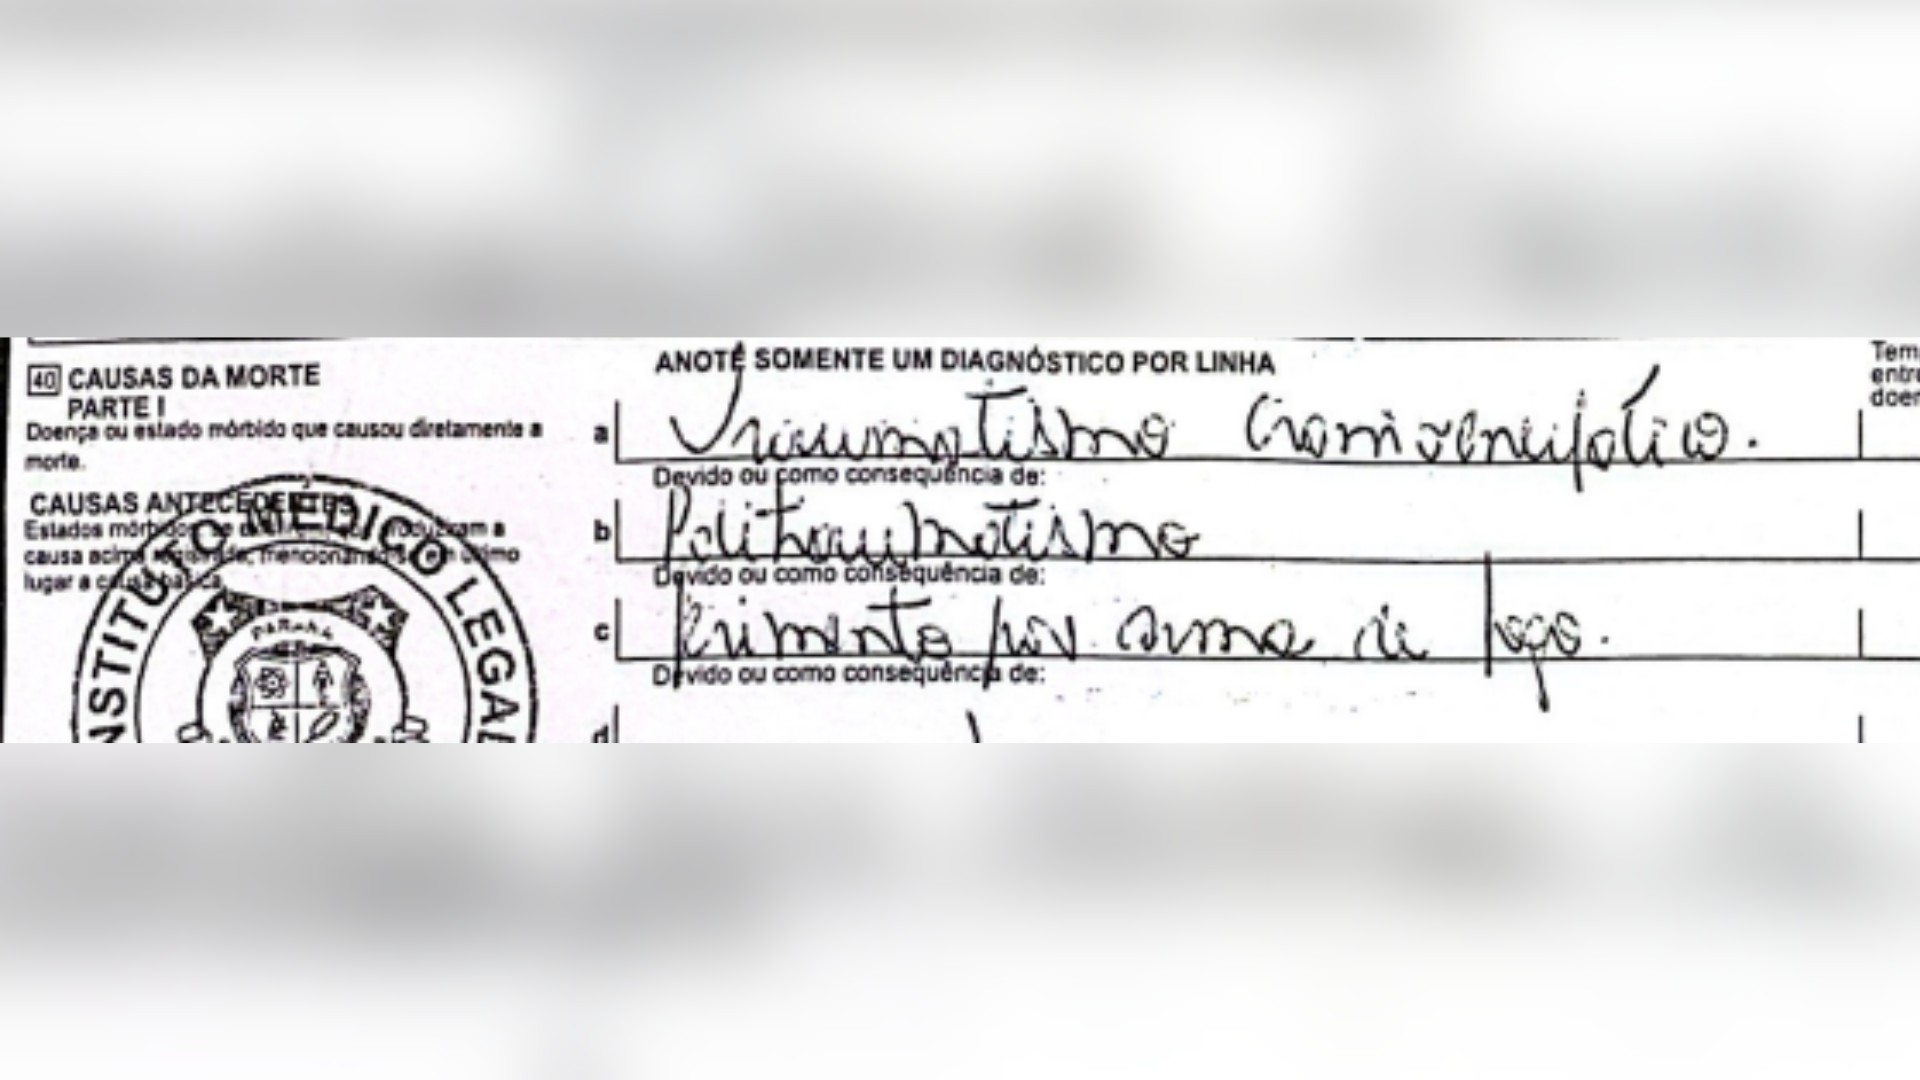 40 CAUSAS DA MORTE
PARTE I
Doença ou estado mórbido que causou diretamente a
morte.
CAUSAS ANTECEDENTES
Estados mórbidos, se
causa acima registrada, mencionando-se em último
lugar a causa básica.
INSTITUTO MÉDICO LEGAL
PARANÁ
ANOTE SOMENTE UM DIAGNÓSTICO POR LINHA
a Traumatismo Cranioencefálico.
Devido ou como consequência de:
b Politraumatismo
Devido ou como consequência de:
c Ferimento por arma de fogo.
Devido ou como consequência de:
d